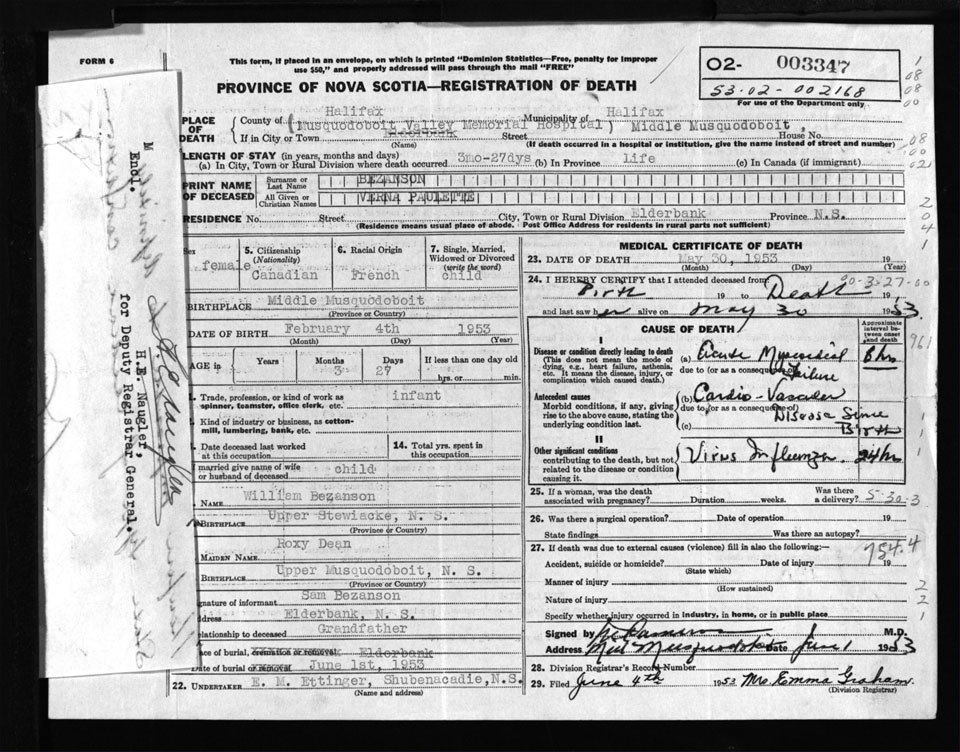 FORM 6
This form, if placed in an envelope, on which is printed "Dominion Statistics—Free, penalty for improper
use $50," and properly addressed will pass through the mail "FREE"
PROVINCE OF NOVA SCOTIA—REGISTRATION OF DEATH
O2- 003347
53-02-002168
For use of the Department only
PLACE OF DEATH
County of Halifax Municipality of Halifax
(Musquodoboit Valley Memorial Hospital) Middle Musquodoboit,
If in City or Town Street House No.
(Name) (If death occurred in a hospital or institution, give the name instead of street and number)
LENGTH OF STAY (in years, months and days)
(a) In City, Town or Rural Division where death occurred 3mo-27dys (b) In Province life (c) In Canada (if immigrant)
PRINT NAME OF DECEASED
Surname or Last Name BEZANSON
All Given or Christian Names VERNA PAULETTE
RESIDENCE No. Street City, Town or Rural Division Elderbank Province N.S.
(Residence means usual place of abode. Post Office Address for residents in rural parts not sufficient)
Sex female
5. Citizenship (Nationality) Canadian
6. Racial Origin French
7. Single, Married, Widowed or Divorced (write the word) child
BIRTHPLACE Middle Musquodoboit
(Province or Country)
DATE OF BIRTH February 4th 1953
(Month) (Day) (Year)
AGE in Years Months 3 Days 27 If less than one day old hrs. or min.
Trade, profession, or kind of work as spinner, teamster, office clerk, etc. infant
Kind of industry or business, as cotton-mill, lumbering, bank, etc.
Date deceased last worked at this occupation
14. Total yrs. spent in this occupation
If married give name of wife or husband of deceased child
NAME William Bezanson
BIRTHPLACE Upper Stewiacke, N. S.
(Province or Country)
MAIDEN NAME Roxy Dean
BIRTHPLACE Upper Musquodoboit, N. S.
(Province or Country)
Signature of informant Sam Bezanson
Address Elderbank, N. S.
Relationship to deceased Grandfather
Place of burial, cremation or removal Elderbank
Date of burial or removal June 1st, 1953
22. UNDERTAKER E. M. Ettinger, Shubenacadie, N.S.
(Name and address)
MEDICAL CERTIFICATE OF DEATH
23. DATE OF DEATH May 30, 1953 19
(Month) (Day) (Year)
24. I HEREBY CERTIFY that I attended deceased from
Birth 19 to Death 19
and last saw her alive on May 30 1953.
CAUSE OF DEATH
Approximate interval between onset and death
I
Disease or condition directly leading to death
(This does not mean the mode of dying, e.g., heart failure, asthenia, etc. It means the disease, injury, or complication which caused death.)
(a) Acute Myocardial Failure 8 hrs
due to (or as a consequence of)
Antecedent causes
Morbid conditions, if any, giving rise to the above cause, stating the underlying condition last.
(b) Cardio-Vascular
due to (or as a consequence of)
Disease Since Birth
(c)
II
Other significant conditions contributing to the death, but not related to the disease or condition causing it.
Virus Influenza. 24 hrs
25. If a woman, was the death associated with pregnancy? Duration weeks. Was there a delivery? 5-30-3
26. Was there a surgical operation? Date of operation 19
State findings Was there an autopsy?
27. If death was due to external causes (violence) fill in also the following:— 754.4
Accident, suicide or homicide? Date of injury 19
(State which)
Manner of injury
(How sustained)
Nature of injury
Specify whether injury occurred in industry, in home, or in public place
Signed by M.D.
Address Mid Musquodoboit Date June 1 1953
28. Division Registrar's Record Number
29. Filed June 4th 1953 Mrs Emma Graham.
(Division Registrar)
M Encl.
H.E. Naugler,
for Deputy Registrar General.